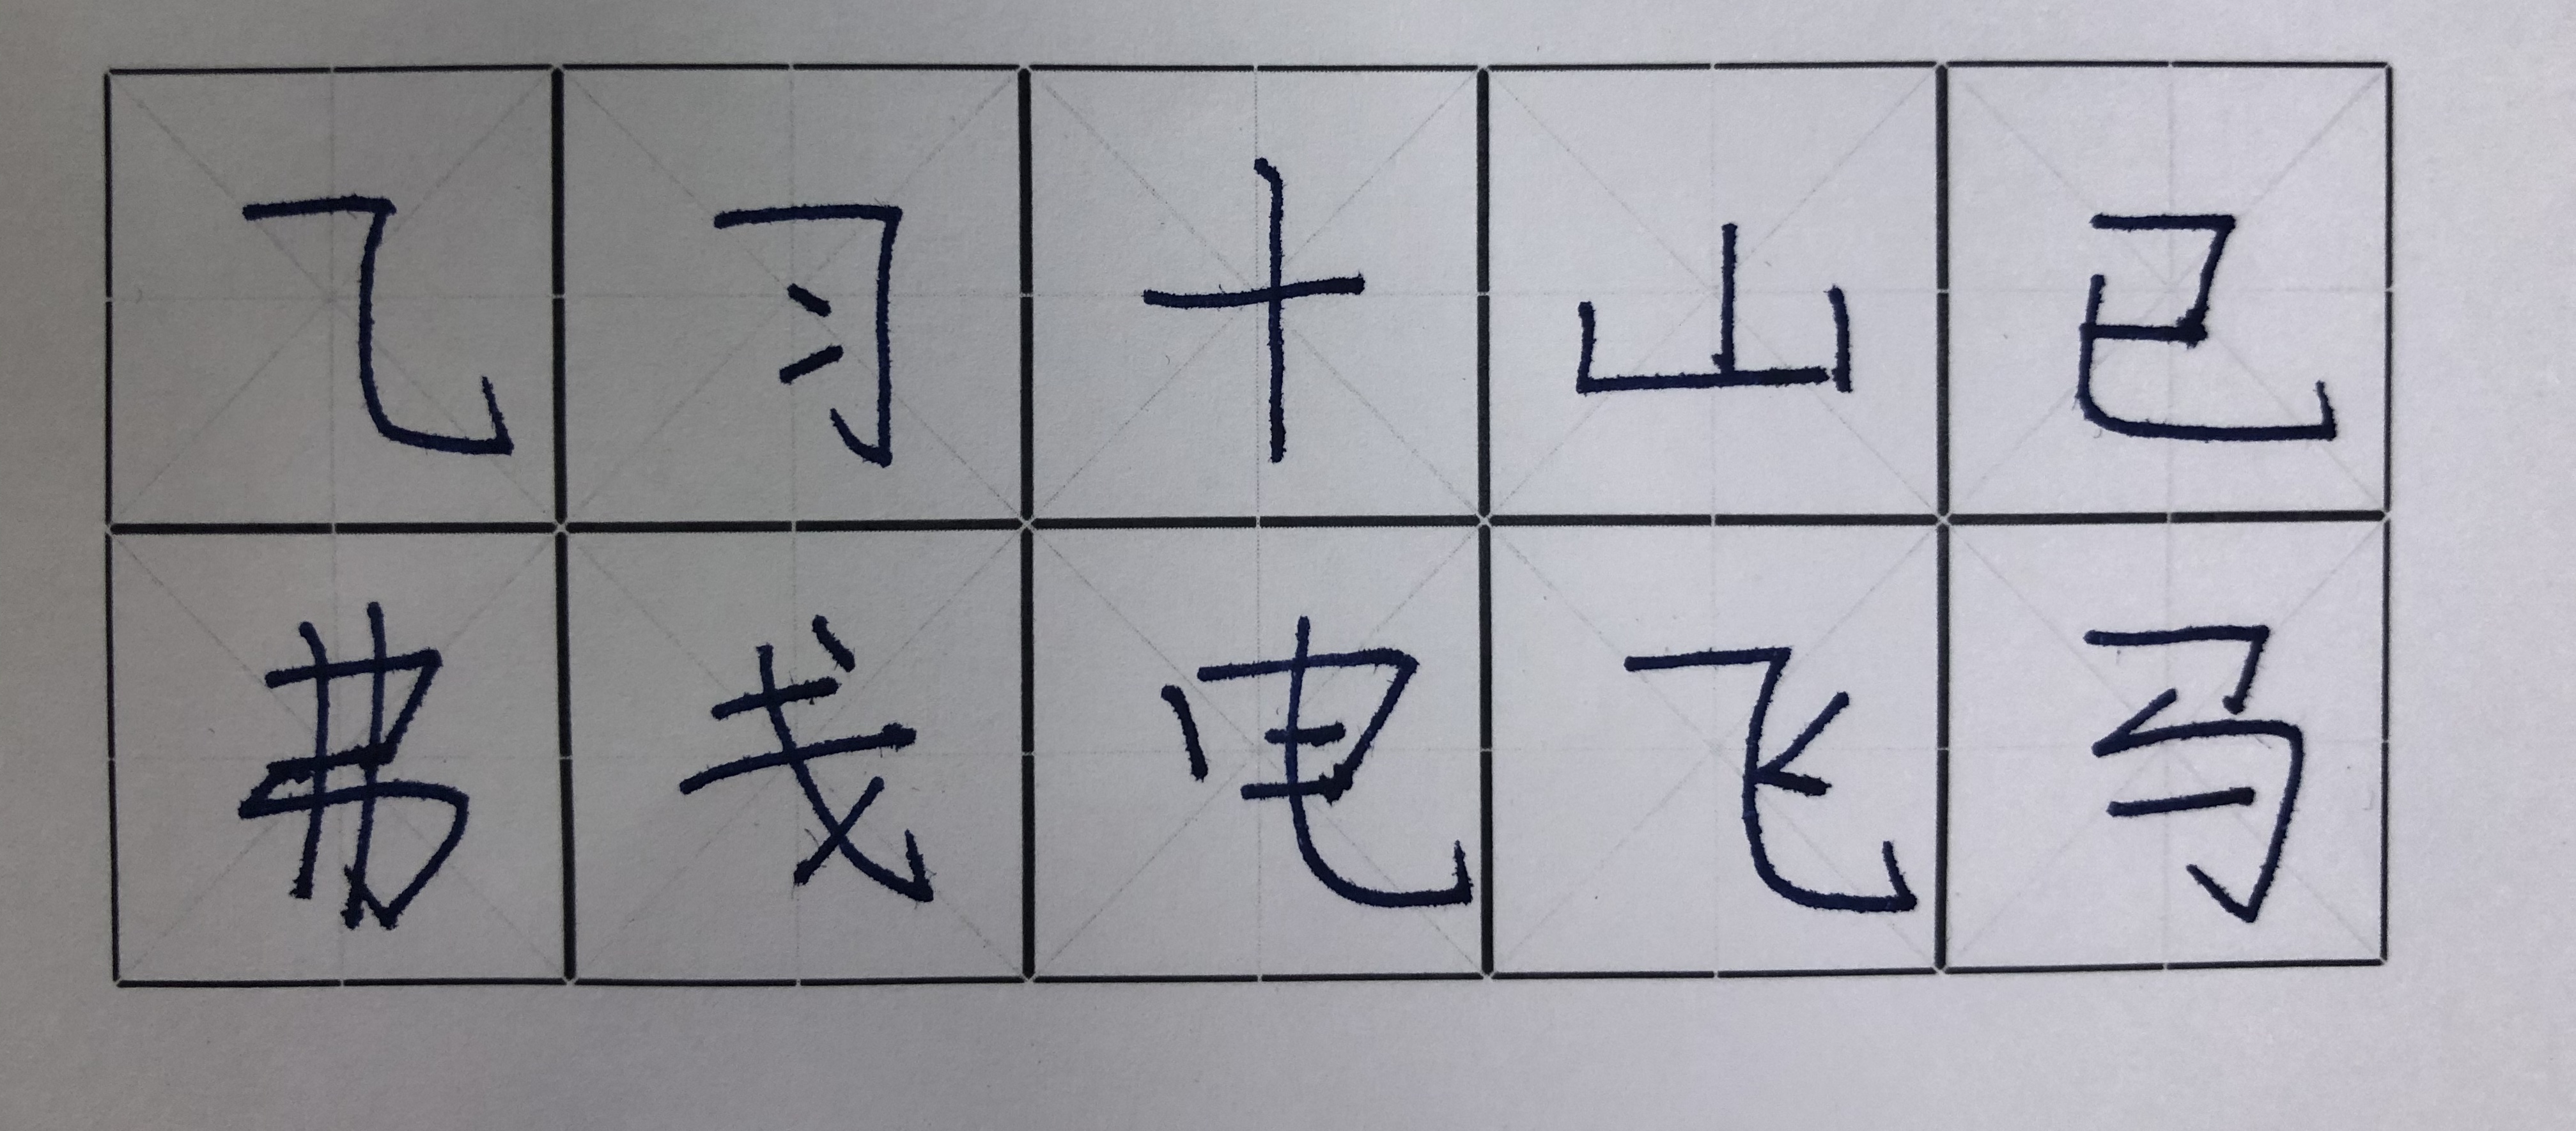 乙习十山已
弗戋电飞马